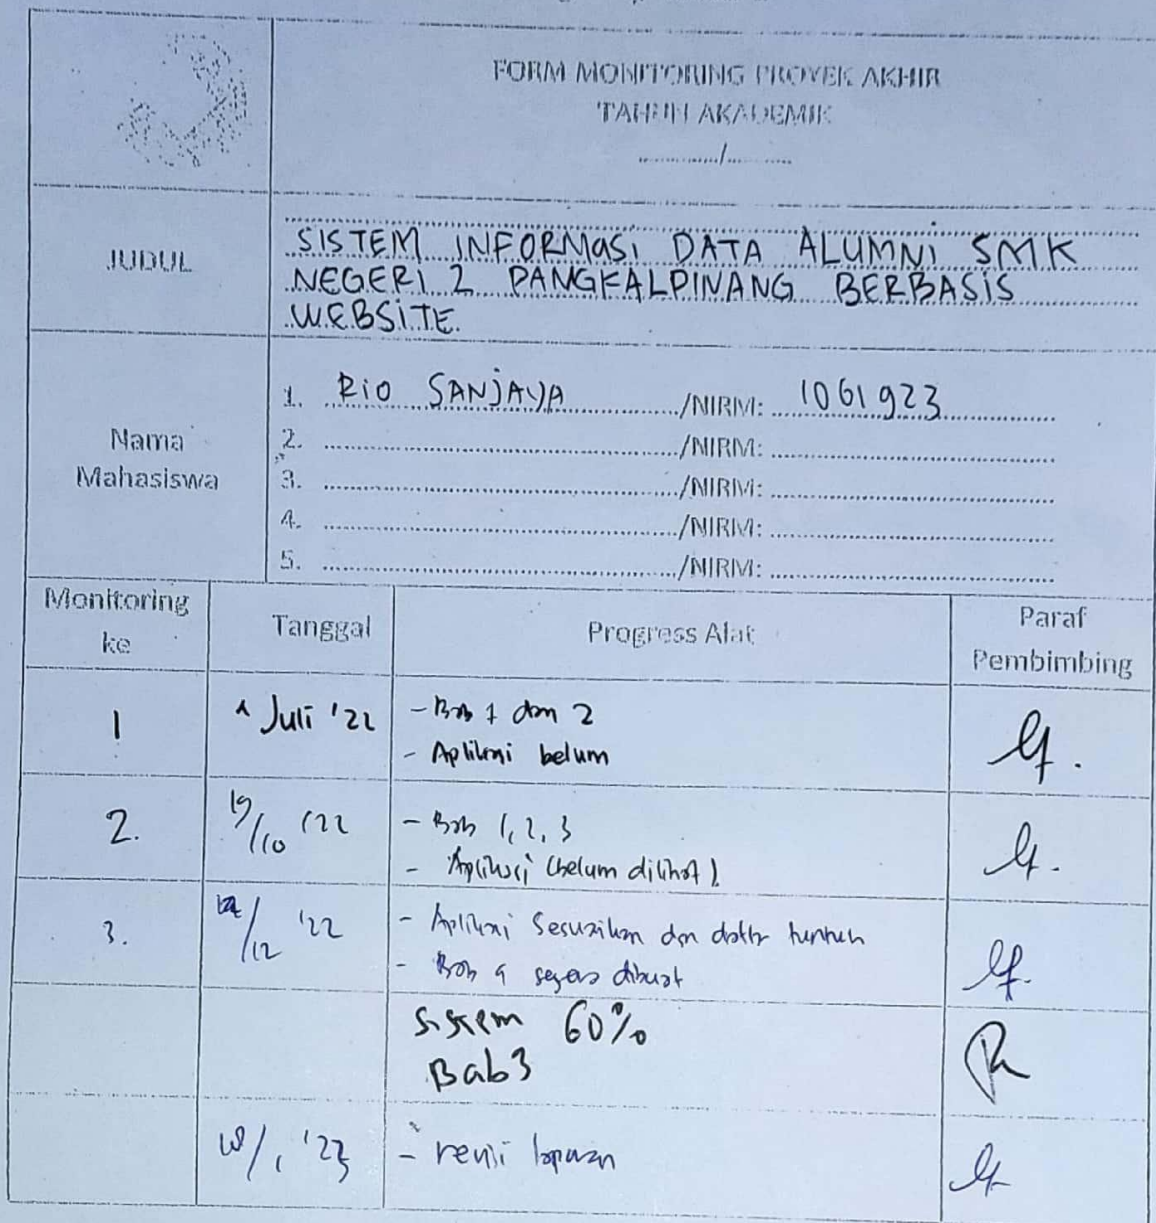 FORM MONITORING PROYEK AKHIR
TAHUN AKADEMIK
............/............
JUDUL
SISTEM INFORMASI DATA ALUMNI SMK
NEGERI 2 PANGKALPINANG BERBASIS
WEBSITE.
Nama
Mahasiswa
1. RIO SANJAYA /NIRM: 1061923
2. /NIRM:
3. /NIRM:
4. /NIRM:
5. /NIRM:
Monitoring
ke
Tanggal
Progress Alat
Paraf
Pembimbing
1
1 Juli '22
- Bab 1 dan 2
- Aplikasi belum
2.
19/10 '22
- Bab 1, 2, 3
- Aplikasi (belum dilihat)
3.
/12 '22
- Aplikasi Sesuaikan dgn daftar
- Bab 4 segera dibuat
Sistem 60%
Bab 3
/1 '23
- revisi laporan